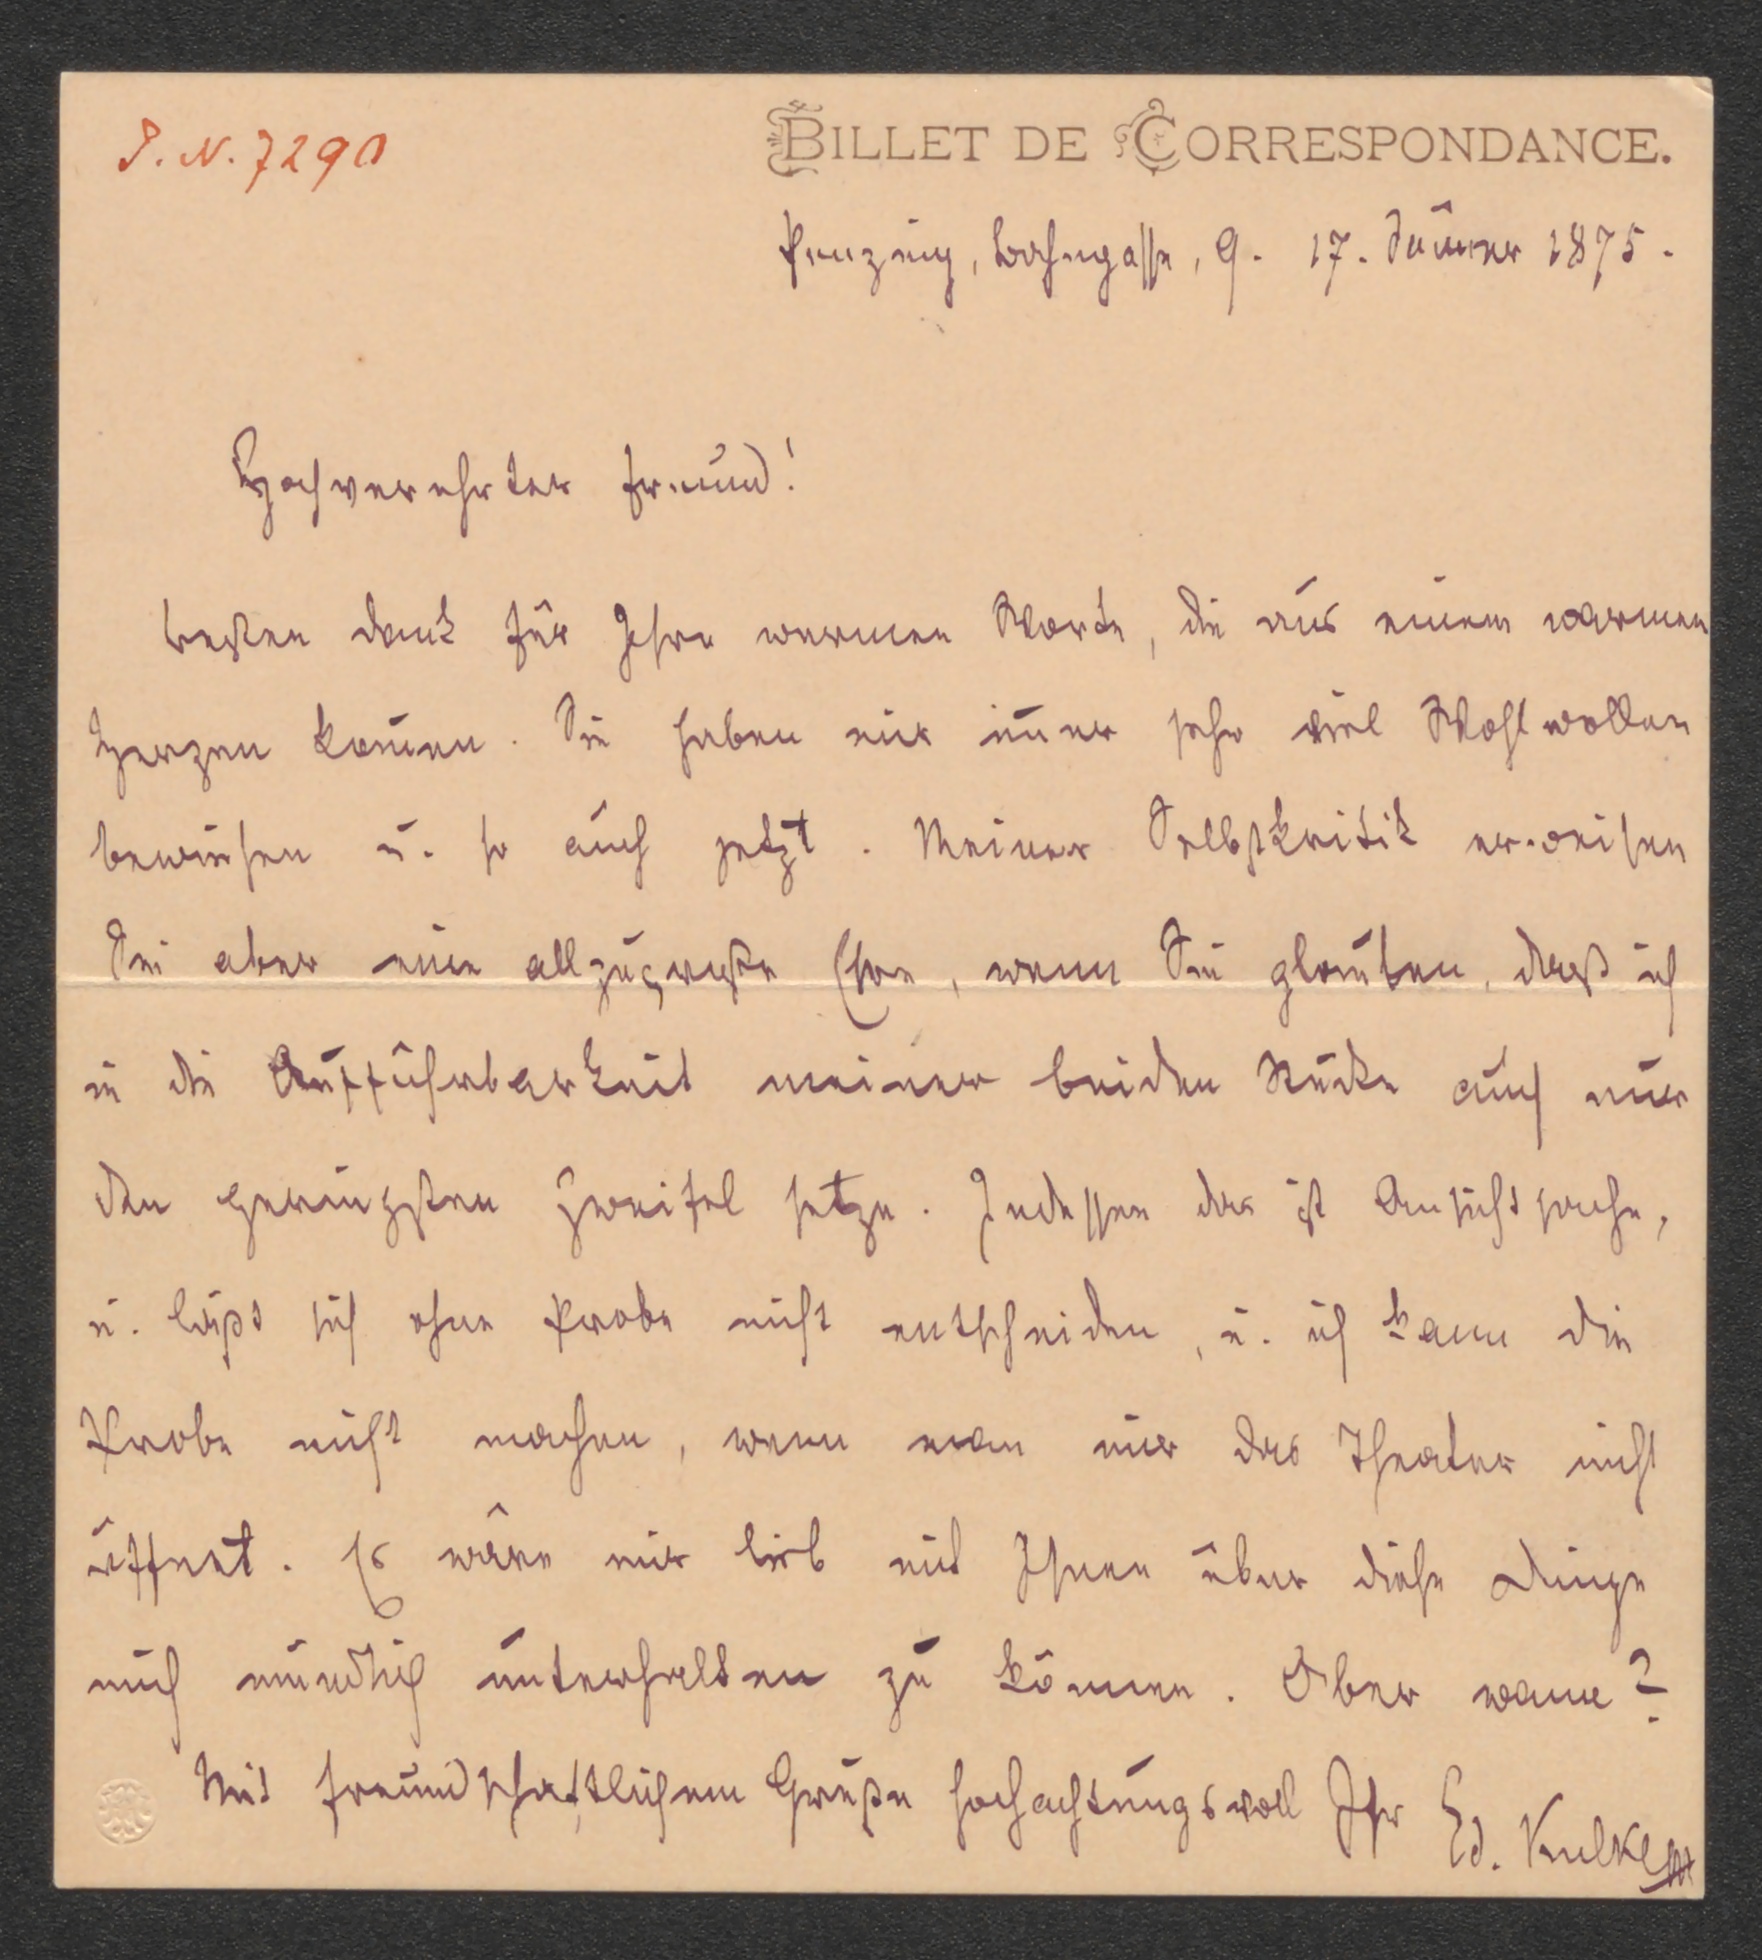 I. N. 7290
BILLET DE CORRESPONDANCE.
Penzing, Bahngasse, 9. 17. Jänner 1875.
Hochverehrter Freund!
besten Dank für Ihre warmen Worte, die aus einem warmen
Herzen kom̄en. Sie haben mir im̄er sehr viel Wohlwollen
bewiesen u. so auch jetzt. Meiner Selbstkritik erweisen
Sie aber eine allzugroße Ehre, wenn Sie glauben, daß ich
in die Aufführbarkeit meiner beiden Stücke auch nur
den geringsten Zweifel setze. Indessen das ist Ansichtsache,
u. läßt sich ohne Probe nicht entscheiden, u. ich kann die
Probe nicht machen, wenn man mir das Theater nicht
öffnet. Es wäre mir lieb mit Ihnen über diese Dinge
mich mündlich unterhalten zu können. Aber wann?
Mit freundschaftlichem Gruße hochachtungsvoll Ihr Ed. Kulke